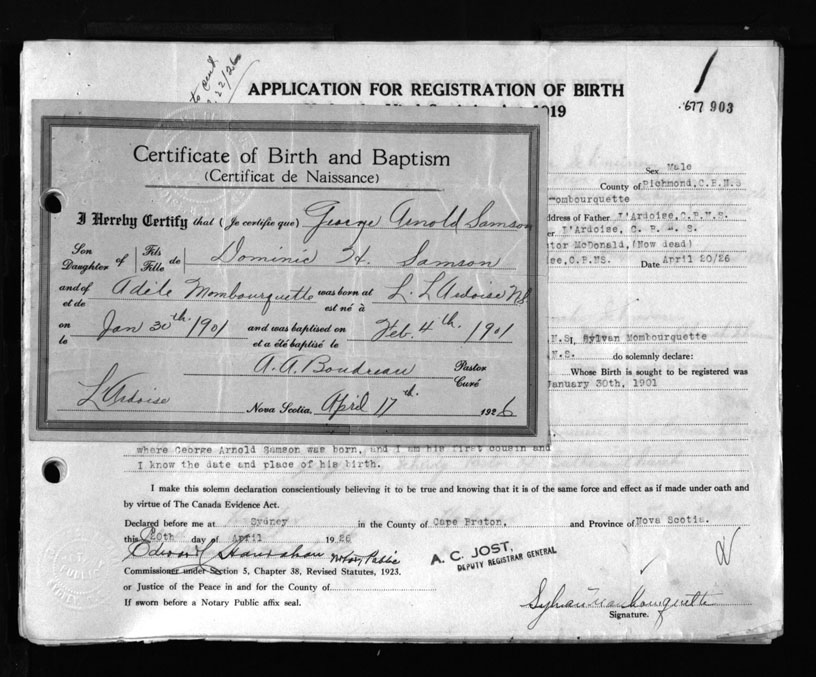 to cert.
22/26
APPLICATION FOR REGISTRATION OF BIRTH
1919
677 903
Sex Male
County of Richmond, C.B.N.S
Mombourquette
Address of Father L'Ardoise, C.B.N.S.
L'Ardoise, C. B. N. S.
McDonald, (Now dead)
C.B.NS. Date April 20/26
Certificate of Birth and Baptism
(Certificat de Naissance)
I Hereby Certify that (Je certifie que) George Arnold Samson
Son Daughter of Fils Fille de Dominic H. Samson
and of et de Adèle Mombourquette was born at est né à L. L'Ardoise NS
on le Jan 30th 1901 and was baptised on et a été baptisé le Feb. 4th 1901
A. A. Boudreau Pastor Curé
L'Ardoise Nova Scotia, April 17th 1926
N.S. I, Sylvan Mombourquette
N.S. do solemnly declare:
Whose Birth is sought to be registered was
January 30th, 1901
where George Arnold Samson was born, and I am his first cousin and
I know the date and place of his birth.
I make this solemn declaration conscientiously believing it to be true and knowing that it is of the same force and effect as if made under oath and
by virtue of The Canada Evidence Act.
Declared before me at Sydney in the County of Cape Breton, and Province of Nova Scotia.
this 20th day of April 1926
Edward Hanrahan Notary Public
A. C. JOST,
DEPUTY REGISTRAR GENERAL
Commissioner under Section 5, Chapter 38, Revised Statutes, 1923.
or Justice of the Peace in and for the County of
If sworn before a Notary Public affix seal.
Sylvan Mombourquette
Signature.